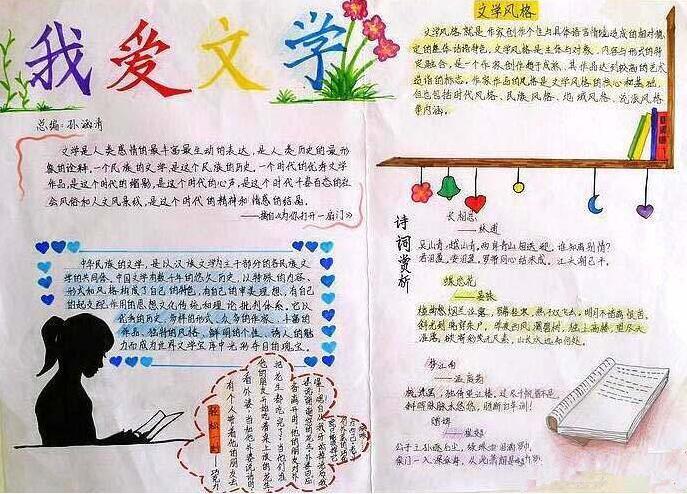 我爱文学
总编:孙涵青
文学是人类感情的最丰富最生动的表达,是人类历史的最形
象的诠释,一个民族的文学是这个民族的历史,一个时代的优秀文学
作品,是这个时代的缩影,是这个时代的心声,是这个时代千姿百态的社
会风俗和人文风景线,是这个时代的精神和情感的结晶。
《为你打开一扇门》
中华民族的文学,是以汉族文学为主干部分的各民族文
学的共同体。中国文学有数千年的悠久历史,以特殊的内容、
形式和风格构成了自己的特色,有自己的审美理想,有自己
的起支配作用的思想文化传统和理论批判体系。它以
优秀的历史、多样的形式、众多的作家、丰富的
作品、独特的风格、鲜明的个性、诱人的魅
力而成为世界文学宝库中光彩夺目的瑰宝。
轻松一刻
文学风格
文学风格就是作家创作个性与具体话语情境造成的相对稳
定的整体话语特色。文学风格是主体与对象、内容与形式的特
定融合,是一个作家创作趋于成熟、其作品达到较高的艺术
造诣的标志。作家作品的风格是文学风格的核心和基础,
但也包括时代风格、民族风格、地域风格、流派风格
等内涵。
诗词赏析
长相思
——林逋
吴山青,越山青,两岸青山相送迎,谁知离别情?
君泪盈,妾泪盈,罗带同心结未成,江头潮已平。
蝶恋花
——晏殊
槛菊愁烟兰泣露,罗幕轻寒,燕子双飞去。明月不谙离恨苦,
斜光到晓穿朱户。昨夜西风凋碧树,独上高楼,望尽天
涯路。欲寄彩笺无尺素,山长水远知何处。
梦江南
——温庭筠
梳洗罢,独倚望江楼。过尽千帆皆不是,
斜晖脉脉水悠悠,肠断白苹洲!
赠婢
——崔郊
公子王孙逐后尘,绿珠垂泪滴罗巾。
侯门一入深似海,从此萧郎是路人。